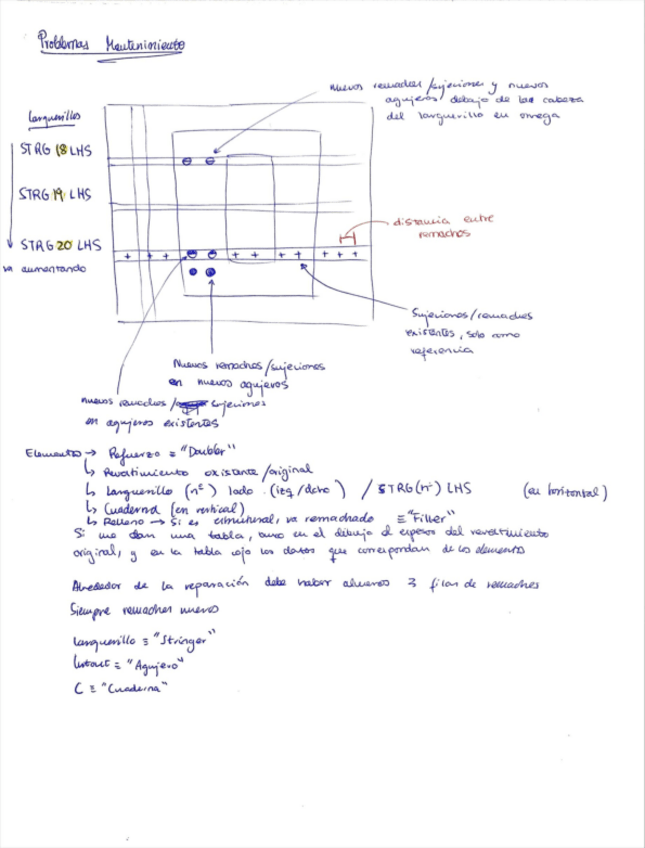 Problemas Mantenimiento
Nuevos remaches/sujeciones y nuevos
agujeros debajo de las cabeza
del larguerillo en omega
Larguerillos
STRG 18 LHS
STRG 19 LHS
STRG 20 LHS
va aumentando
distancia entre
remaches
Sujeciones/remaches
existentes, solo como
referencia
Nuevos remaches/sujeciones
en nuevos agujeros
nuevos remaches/ sujeciones
en agujeros existentes
Elementos → Refuerzo ≡ "Doubler"
↳ Revestimiento existente/original
↳ Larguerillo (nº) lado (izq/dcho) / STRG(nº) LHS (en horizontal)
↳ Cuaderna (en vertical)
↳ Relleno → Si es estructural, va remachado ≡ "Filler"
Si me dan una tabla, en el dibujo el espesor del revestimiento
original, y en la tabla cojo los datos que correspondan de los elementos
Alrededor de la reparación debe haber al menos 3 filas de remaches
Siempre remaches nuevos
Larguerillo ≡ "Stringer"
Cutout ≡ "Agujero"
C ≡ "Cuaderna"